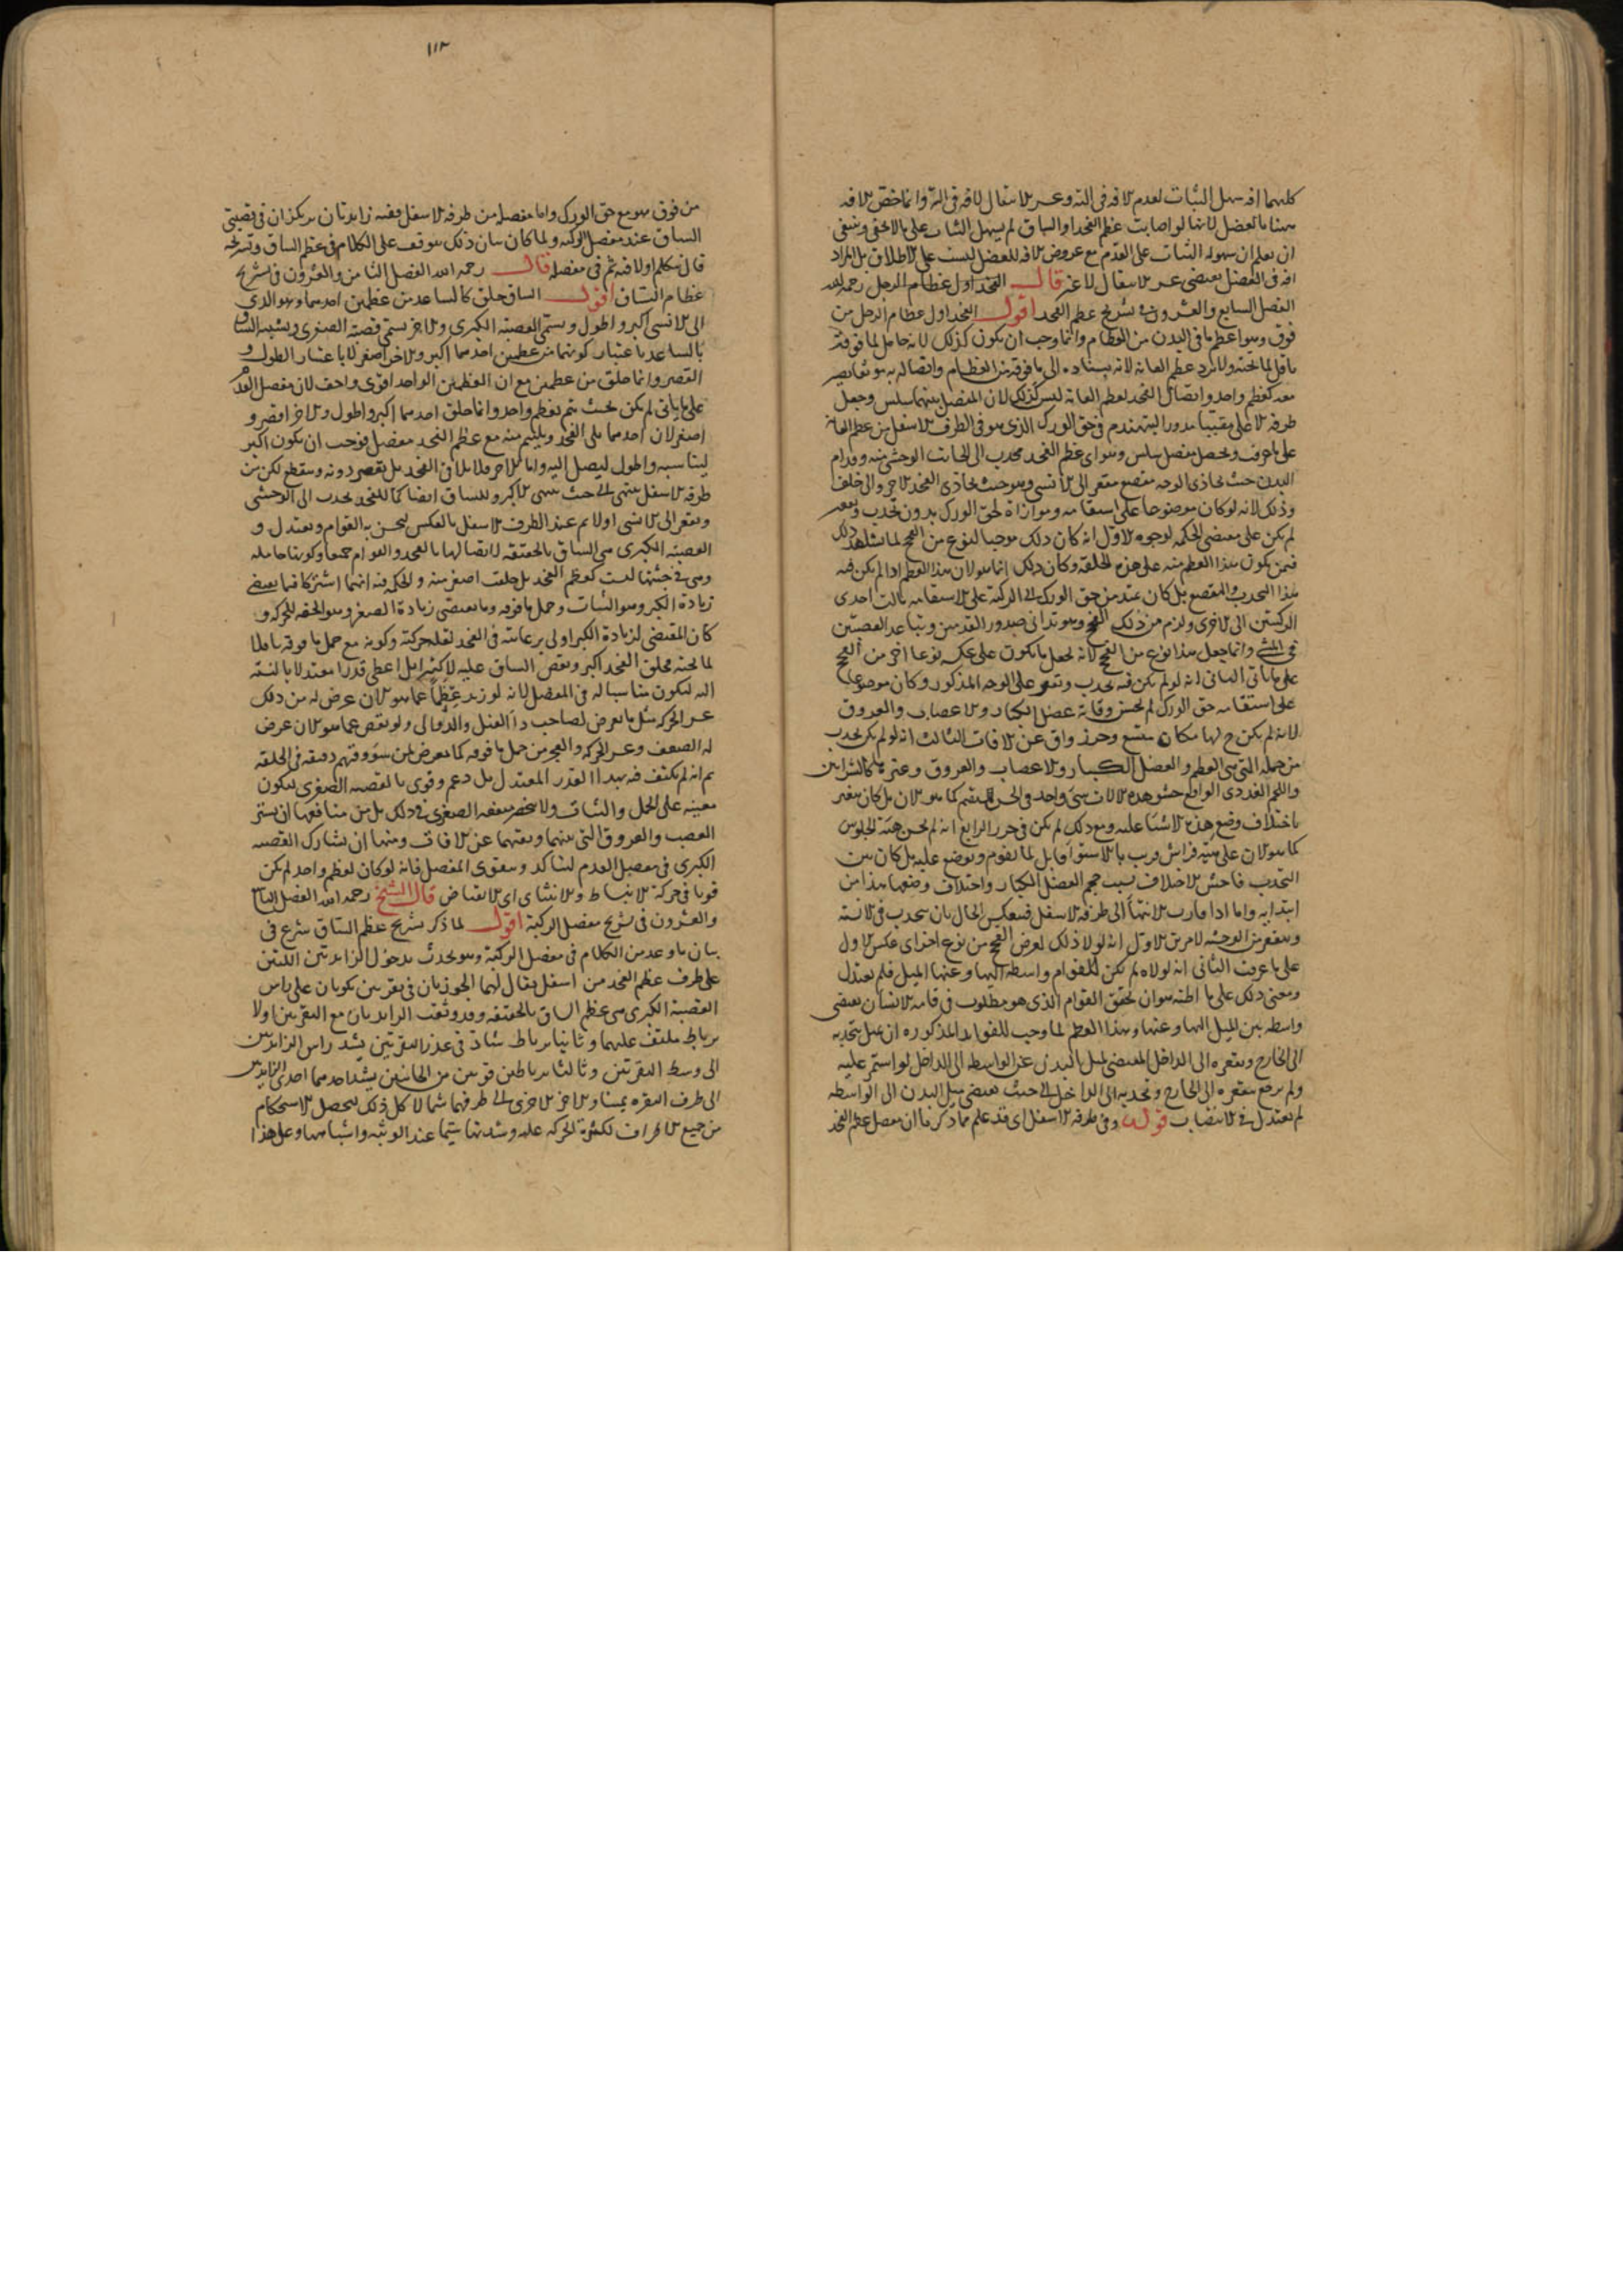 كليهما افه سهل الثبات لعدم الافه في اليه وعسر الانتقال لافه في اليه وانما خص الافه
ههنا بالعضل لانها لو اصابت عظم الفخذ او الساق لم يسهل الثبات على ما لا يخفى وينبغى
ان يعلم ان سهوله الثبات على القدم مع عروض الافه للعضل ليست على الاطلاق بل المراد
افه في العضل يقتضى عسر الانتقال لا غير قال الفخذ اول عظام الرجل رحمه الله
الفصل السابع والعشرون في تشريح عظم الفخذ اقول الفخذ اول عظام الرجل من
فوق وهو اعظم ما في البدن من العظام وانما وجب ان يكون كذلك لانه حامل لما فوقه
ناقل لما تحته ولا يرد عظم العانه لانه يستناده الى ما فوقه من العظام واتصاله به هو يصير
معه كعظم واحد واتصال الفخذ بعظم العانة ليس كذلك لان المفصل بينهما سلس وجعل
طرفه الاعلى مقببا مدورا ليتهندم في حق الورك الذى هو في الطرف الاسفل من عظم العانة
على ما عرفت ويحصل مفصل سلس وهو اى عظم الفخذ محدب الى الجانب الوحشي منه وقدام
البدن حيث يحاذى الوجه مقصع مقعر الى الانسي وهو حيث يحاذى الفخذ الاخر والى خلف
وذلك لانه لو كان موضوعا على استقامه وموازاة لحق الورك بدون تحدب وتقعر
لم يكن على مقتضى الحكمه لوجوه الاول انه كان ذلك موجبا لنوع من الفحج لما يشاهد ذلك
فيمن يكون هذا العظم منه على هذه الخلقه وكان ذلك انما هو لان هذا العظم اذا لم يكن فيه
هذا التحدب والتقصع بل كان عند من حق الورك الى الركبة على الاستقامه مالت احدى
الركبتين الى الاخرى ولزم من ذلك الفحج وهو تدانى صدور القدمين وتباعد العقبين
في المشي وانما جعل هذا نوع من الفحج لانه يجعل ما يكون على عكسه نوعا اخر من الفحج
على ما ياتى الثانى انه لو لم يكن فيه تحدب وتقعر على الوجه المذكور وكان موضوعا
على استقامه حق الورك لم يحسن وقاية عضل الكبار والاعصاب والعروق
لانه لم يكن ح لها مكان متسع وحرز واق عن الافات الثالث انه لو لم يكن تحدب
من جمله التى هي العظم والعضل الكبار والاعصاب والعروق وغيرها كالشرايين
واللحم الغددى الواقع حشو هذه الالات شى واحد في الحسن مستقيم كما هو الان بل كان يتغير
باختلاف وضع هذه الاشيا عليه ومع ذلك لم يكن في حرز الرابع انه لم يحسن هيئة الجلوس
كما هو الان على هيئة فراش قريب بالاستواء قابل لما يقوم ويوضع عليه بل كان بين
التحدب فاحش الاختلاف بسبب حجم العضل الكبار واختلاف وضعها هذا من
ابتدايه واما اذا قارب الانتهاء الى طرفه الاسفل فينعكس الحال بان يتحدب في الانسيه
ويتقعر من الوحشيه لامرين الاول انه لولا ذلك لعرض الفحج من نوع اخر اى عكس الاول
على ما عرفت الثانى انه لولاه لم تكن للقوام واسطه اليها وعنها الميل فلم يعتدل
ومعنى ذلك على ما اظنه هو ان تحقق القوام الذى هو مطلوب في قامه الانسان يقتضى
واسطه بين الميل اليها وعنها وهذا العظم لما وجب للفوايد المذكوره ان يميل بتحدبه
الى الخارج وبتقعره الى الداخل المقتضى لميل البدن عن الواسطه الى الداخل لو استمر عليه
ولم يرجع بتقعره الى الخارج وتحدبه الى الداخل الى حيث يقتضى ميل البدن الى الواسطه
لم يعتدل في الانتصاب قوله وفى طرفه الاسفل اى قد علم مما ذكرنا ان مفصل عظم الفخذ
١١٣
من فوق هو مع حق الورك واما مفصله من طرفه الاسفل ففيه زايدتان يرتكزان في قصبتى
الساق عند مفصل الركبه ولما كان بيان ذلك يتوقف على الكلام في عظم الساق وتشريحه
قال نتكلم اولا فيه ثم في مفصله قال رحمه الله الفصل الثامن والعشرون في تشريح
عظام الساق اقول الساق خلق كالساعد من عظمين احدهما وهو الذى
الى الانسى اكبر واطول ويسمى القصبة الكبرى والاخر يسمى قصبة الصغرى ويشبه الساق
بالساعد باعتبار كونهما من عظمين احدهما اكبر والاخر اصغر لا باعتبار الطول و
القصر وانما خلق من عظمين مع ان العظم من الواحد اقوى واخف لان مفصل القدم
على ما ياتى لم يكن بحيث يتم بعظم واحد وانما خلق احدهما اكبر واطول والاخر اقصر و
اصغر لان احدهما يلى الفخذ ويلتئم منه مع عظم الفخذ مفصل فوجب ان يكون اكبر
ليناسبه واطول ليصل اليه واما الاخر فلا يلاقى الفخذ بل يقصر دونه ويقطع لكن من
طرفه الاسفل ينتهى الى حيث ينتهى الاكبر وللساق ايضا كما للفخذ تحدب الى الوحشى
وتقعر الى الانسى اولا ثم عند الطرف الاسفل بالعكس ليحسن به القوام ويعتدل و
القصبة الكبرى هي الساق بالحقيقه لاتصالها بالفخذ والقوام جميعا وكونها حامله
وهى في جثتها ليست كعظم الفخذ بل خلقت اصغر منه والحكمه فيه انهما اشتركا فيما يقتضى
زيادة الكبر وهو الثبات وحمل ما فوقه وما يقتضى زيادة الصغر وهو الخفه للحركه و
كان المقتضى لزيادة الكبر اولى برعايته في الفخذ لقله حركته وكونه مع حمل ما فوقه ناقلا
لما تحته فخلق الفخذ اكبر ونقص الساق عليه لا كثيرا بل اعطى قدرا معتدلا بالنسبه
اليه ليكون مناسبا له في المفصل لانه لو زيد عظما عما هو الان عرض له من ذلك
عسر الحركه مثل ما يعرض لصاحب داء الفيل والدوالى ولو نقص عما هو الان عرض
له الضعف وعسر الحركه والعجز من حمل ما فوقه كما يعرض لمن سوقهم دقيقه في الخلقه
ثم انه لم يكتف فيه بهذا القدر المعتدل بل دعم وقوى بالقصبه الصغرى ليكون
معينه على الحمل والثبات ولا ينحصر منفعه الصغرى في ذلك بل من منافعها ان يستر
العصب والعروق التى بينهما ويقيهما عن الافات ومنها ان يشارك القصبه
الكبرى في مفصل القدم ليتاكد ويتقوى المفصل فانه لو كان بعظم واحد لم يكن
قويا في حركة الانبساط والانثناى اى الانقباض قال الشيخ رحمه الله الفصل التاسع
والعشرون في تشريح مفصل الركبة اقول لما ذكر تشريح عظم الساق شرع في
بيان ما وعد من الكلام في مفصل الركبة وهو يحدث بدخول الزايدتين اللتين
على طرف عظم الفخذ من اسفل يقال لهما الجوزتان في نقرتين يكونان على راس
القصبة الكبرى هي عظم الساق بالحقيقه وقد وثقت الزايدتان مع النقرتين اولا
برباط ملتف عليهما وثانيا برباط شاد في غور النقرتين يشد راس الزايدتين
الى وسط النقرتين وثالثا برباطين قويين من الجانبين يشد احدهما احدى الزايدتين
الى طرف النقره يمينا والاخر الاخرى الى طرفها شمالا كل ذلك ليحصل الاستحكام
من جميع الاطراف لكثرة الحركه عليه وشدتها سيما عند الوثبه واشباهها وعلى هذا